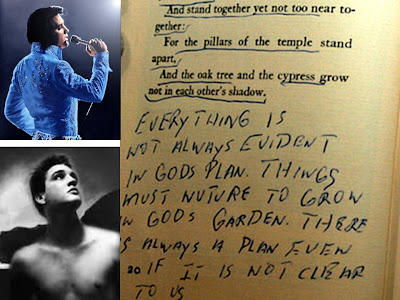 And stand together yet not too near to-
gether:
For the pillars of the temple stand
apart,
And the oak tree and the cypress grow
not in each other's shadow.
EVERYTHING IS
NOT ALWAYS EVIDENT
IN GODS PLAN. THINGS
MUST NUTURE TO GROW
IN GODS GARDEN. THERE
IS ALWAYS A PLAN EVEN
20 IF IT IS NOT CLEAR
TO US